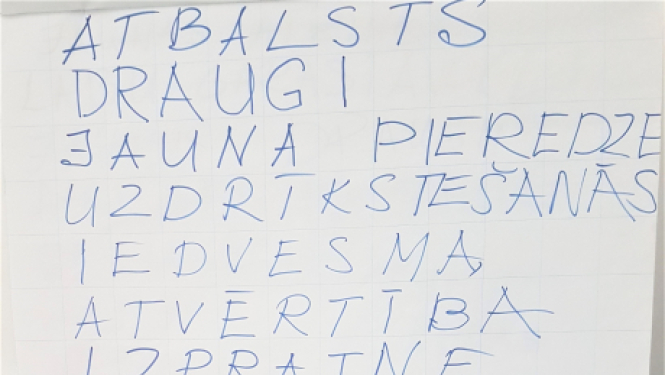 ATBALSTS
DRAUGI
JAUNA PIEREDZE
UZDRĪKSTEŠANĀS
IEDVESMA
ATVĒRTĪBA
IZPRATNE